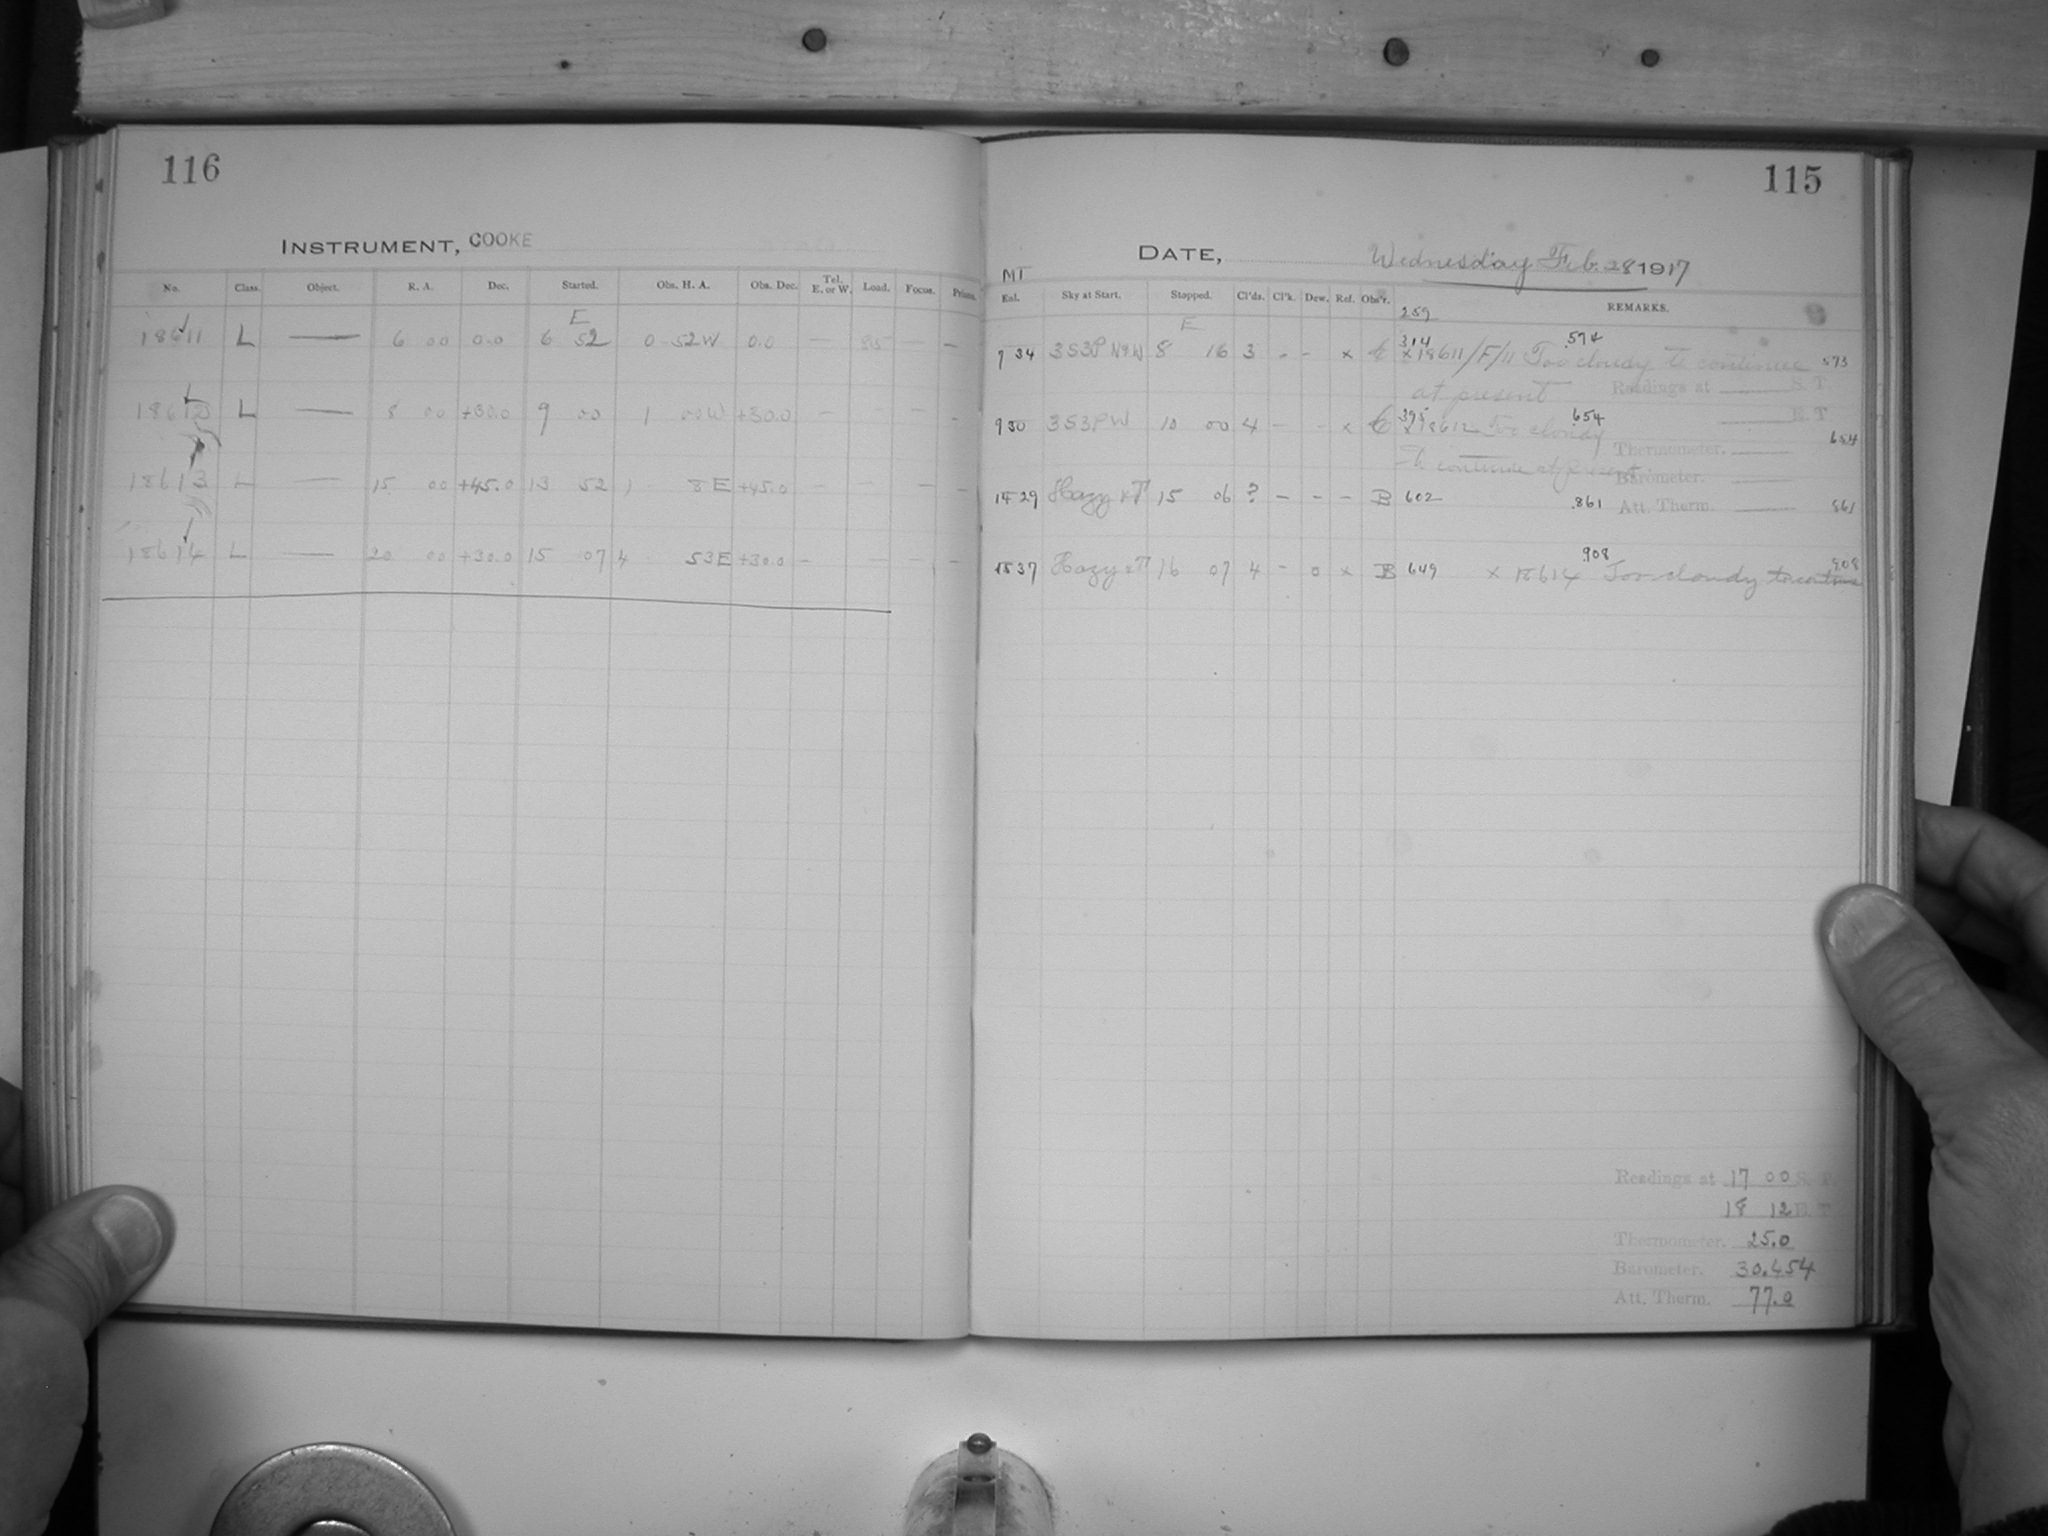 116
INSTRUMENT, COOKE
No. Class. Object. R. A. Dec. Started. Obs. H. A. Obs. Dec. Tel. E. or W. Load. Focus. Prisms.
E
18611 L — 6 00 0.0 6 52 0 52W 0.0 — 85 — —
18612 L — 8 00 +30.0 9 00 1 00W +30.0 — — — —
18613 L — 15 00 +45.0 13 52 1 8E +45.0 — — — —
18614 L — 20 00 +30.0 15 07 4 53E +30.0 — — — —
115
DATE, Wednesday Feb. 28 1917
MT
Eql. Sky at Start. Stopped. Cl'ds. Cl'k. Dew. Ref. Obs'r. REMARKS.
259
E
314 .574
7 34 3S3P N&W 8 16 3 - - x C x18611/F/11 Too cloudy to continue 573
at present Readings at S. T.
E. T.
395 .654
9 30 3S3PW 10 00 4 - - x C x18612 Too cloudy 654
to continue at present
Thermometer.
Barometer.
14 29 Hazy 15 06 ? - - - B 602 .861 Att. Therm. 861
.908
15 37 Hazy 16 07 4 - 0 x B 649 x 18614 Too cloudy to continue 908
Readings at 17 00 S. T.
18 12 E. T.
Thermometer. 25.0
Barometer. 30.454
Att. Therm. 77.0